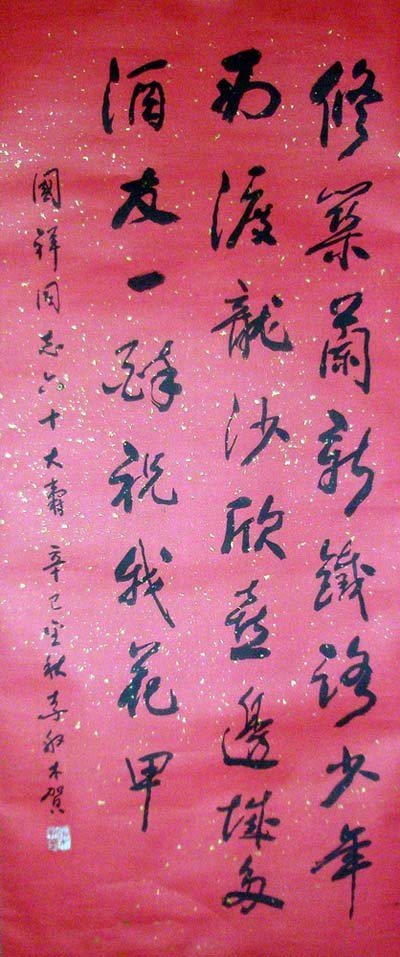 修築蘭新鐵路少年
西渡龍沙欣喜邊城多
酒友一醉祝我花甲
國祥同志六十大壽 辛巳金秋 木賀